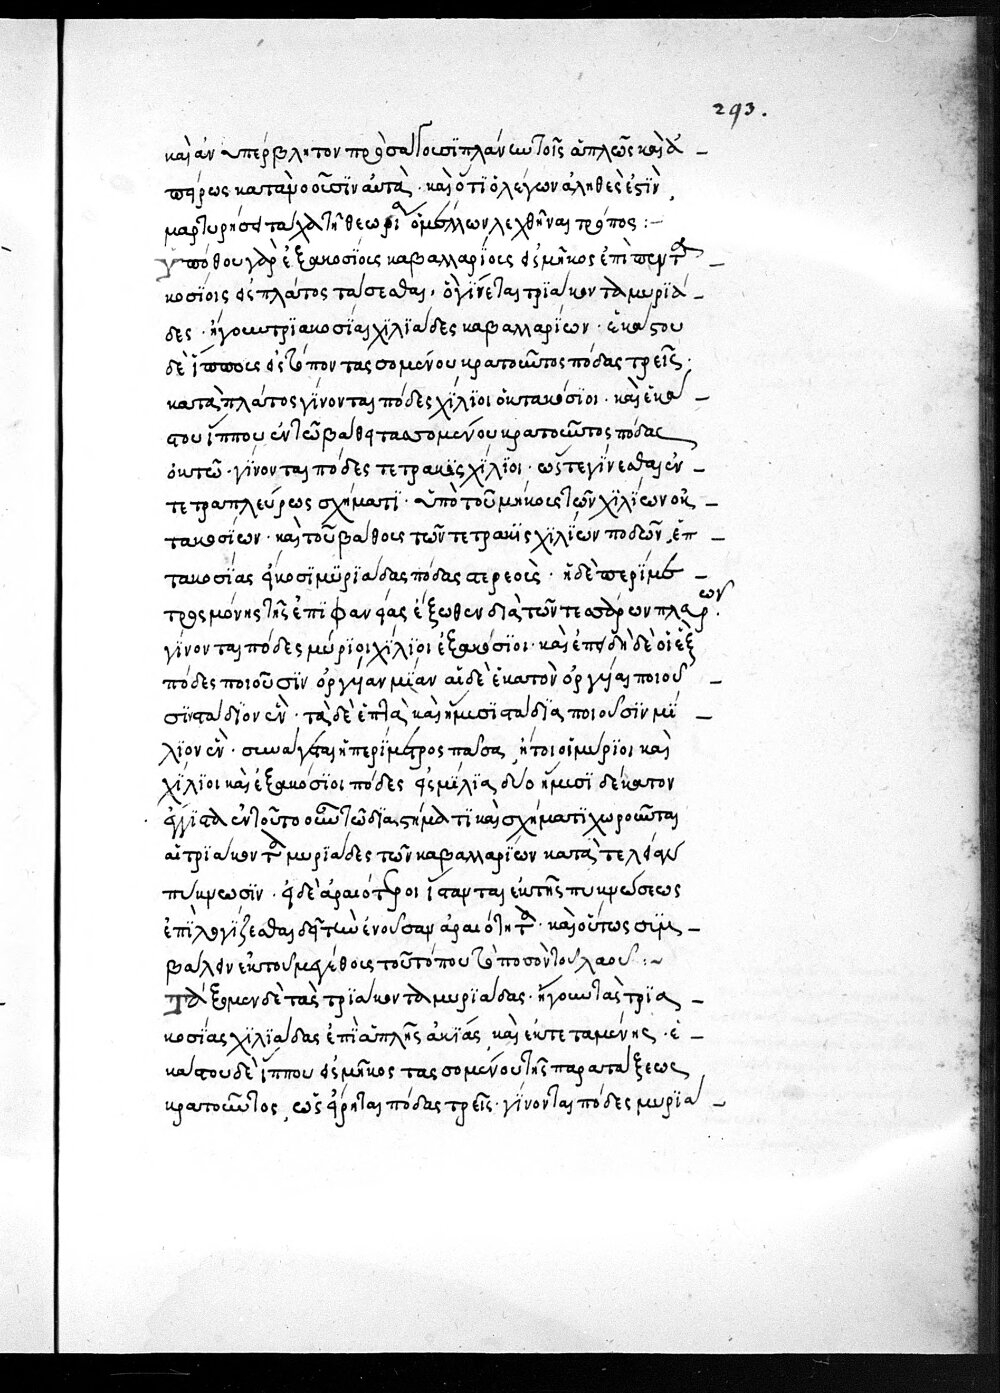 293.
καὶ ἀνυπέρβλητον πρὸς αὐτοὺς ἐμπλάττων τοῖς ἁπλῶς καὶ ἀ
πείρως κατανοοῦσιν αὐτά · καὶ ὅτι ὁ λέγων ἀληθὲς ἐστὶν,
μαρτυρήσει τὰ κατὰ τὴν θεωρίαν ὁ μέλλων λεχθῆναι τρόπος :—
Ὑπόθου γὰρ ἑξακοσίους καβαλλαρίους εἰς μῆκος ἐπὶ πεντα
κοσίοις εἰς πλάτος τάσσεσθαι, ὃ γίνεται τριάκοντα μυριά
δες · ἤγουν τριακόσιαι χιλιάδες καβαλλαρίων · ἑκάστου
δὲ ἵππου εἰς τόπον τασσομένου κρατοῦντος πόδας τρεῖς ·
κατὰ πλάτος γίνονται πόδες χίλιοι ὀκτακόσιοι · καὶ ἑκά
στου ἵππου ἐν τῷ βάθει τασσομένου κρατοῦντος πόδας
ὀκτώ · γίνονται πόδες τετρακισχίλιοι · ὥστε γίνεσθαι ἐν
τετραπλεύρῳ σχήματι · ἀπὸ τοῦ μήκους τῶν χιλίων ὀκ
τακοσίων · καὶ τοῦ βάθους τῶν τετρακισχιλίων ποδῶν, ἑπ
τακοσίας εἴκοσι μυριάδας πόδας στερεούς · ἡ δὲ περίμε
τρος μόνης τῆς ἐπιφανείας ἔξωθεν διὰ τῶν τεσσάρων πλευρῶν ·
γίνονται πόδες μύριοι χίλιοι ἑξακόσιοι · καὶ ἐπειδὴ δὲ οἱ ἓξ
πόδες ποιοῦσιν ὀργυιὰν μίαν αἱ δὲ ἑκατὸν ὀργυιαὶ ποιοῦ
σι στάδιον ἕν · τὰ δὲ ἑπτὰ καὶ ἥμισυ στάδια ποιοῦσιν μί
λιον ἕν · συνάγεται ἡ περίμετρος πᾶσα, ἤτοι οἱ μύριοι καὶ
χίλιοι καὶ ἑξακόσιοι πόδες εἰς μίλια δύο ἥμισυ δέκατον
ἔγγιστα ἐν τούτῳ οὖν τῷ διαστήματι καὶ σχήματι χωροῦνται
αἱ τριάκοντα μυριάδες τῶν καβαλλαρίων κατὰ τελείαν
πύκνωσιν · εἰ δὲ ἀραιότεροι ἵστανται ἐκ τῆς πυκνώσεως
ἐπιλογίζεσθαι δεῖ τὴν ἐνοῦσαν ἀραιότητα · καὶ οὕτως συμ
βαλεῖν ἐκ τοῦ μεγέθους τοῦ τόπου τὸ ποσὸν τοῦ λαοῦ :~
Τάξομεν δὲ τὰς τριάκοντα μυριάδας · ἤγουν τὰς τρια
κοσίας χιλιάδας ἐπὶ ἁπλῆς ἀκίας, καὶ ἐκτεταμένης · ἑ
κάστου δὲ ἵππου εἰς μῆκος τασσομένου τῆς παρατάξεως
κρατοῦντος, ὡς εἴρηται πόδας τρεῖς · γίνονται πόδες μυριά